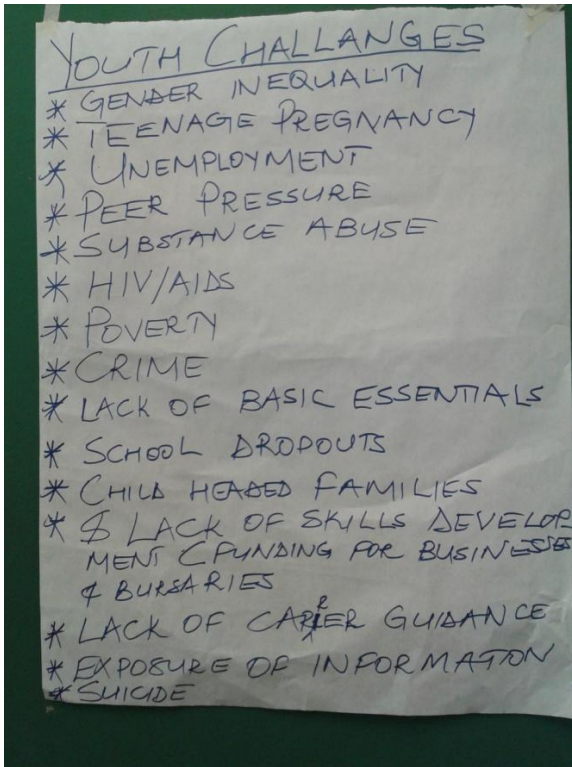 YOUTH CHALLANGES
* GENDER INEQUALITY
* TEENAGE PREGNANCY
* UNEMPLOYMENT
* PEER PRESSURE
* SUBSTANCE ABUSE
* HIV/AIDS
* POVERTY
* CRIME
* LACK OF BASIC ESSENTIALS
* SCHOOL DROPOUTS
* CHILD HEADED FAMILIES
* $ LACK OF SKILLS DEVELOP
MENT (FUNDING FOR BUSINESSES
& BURSARIES
* LACK OF CARRER GUIDANCE
* EXPOSURE OF INFORMATION
* SUICIDE